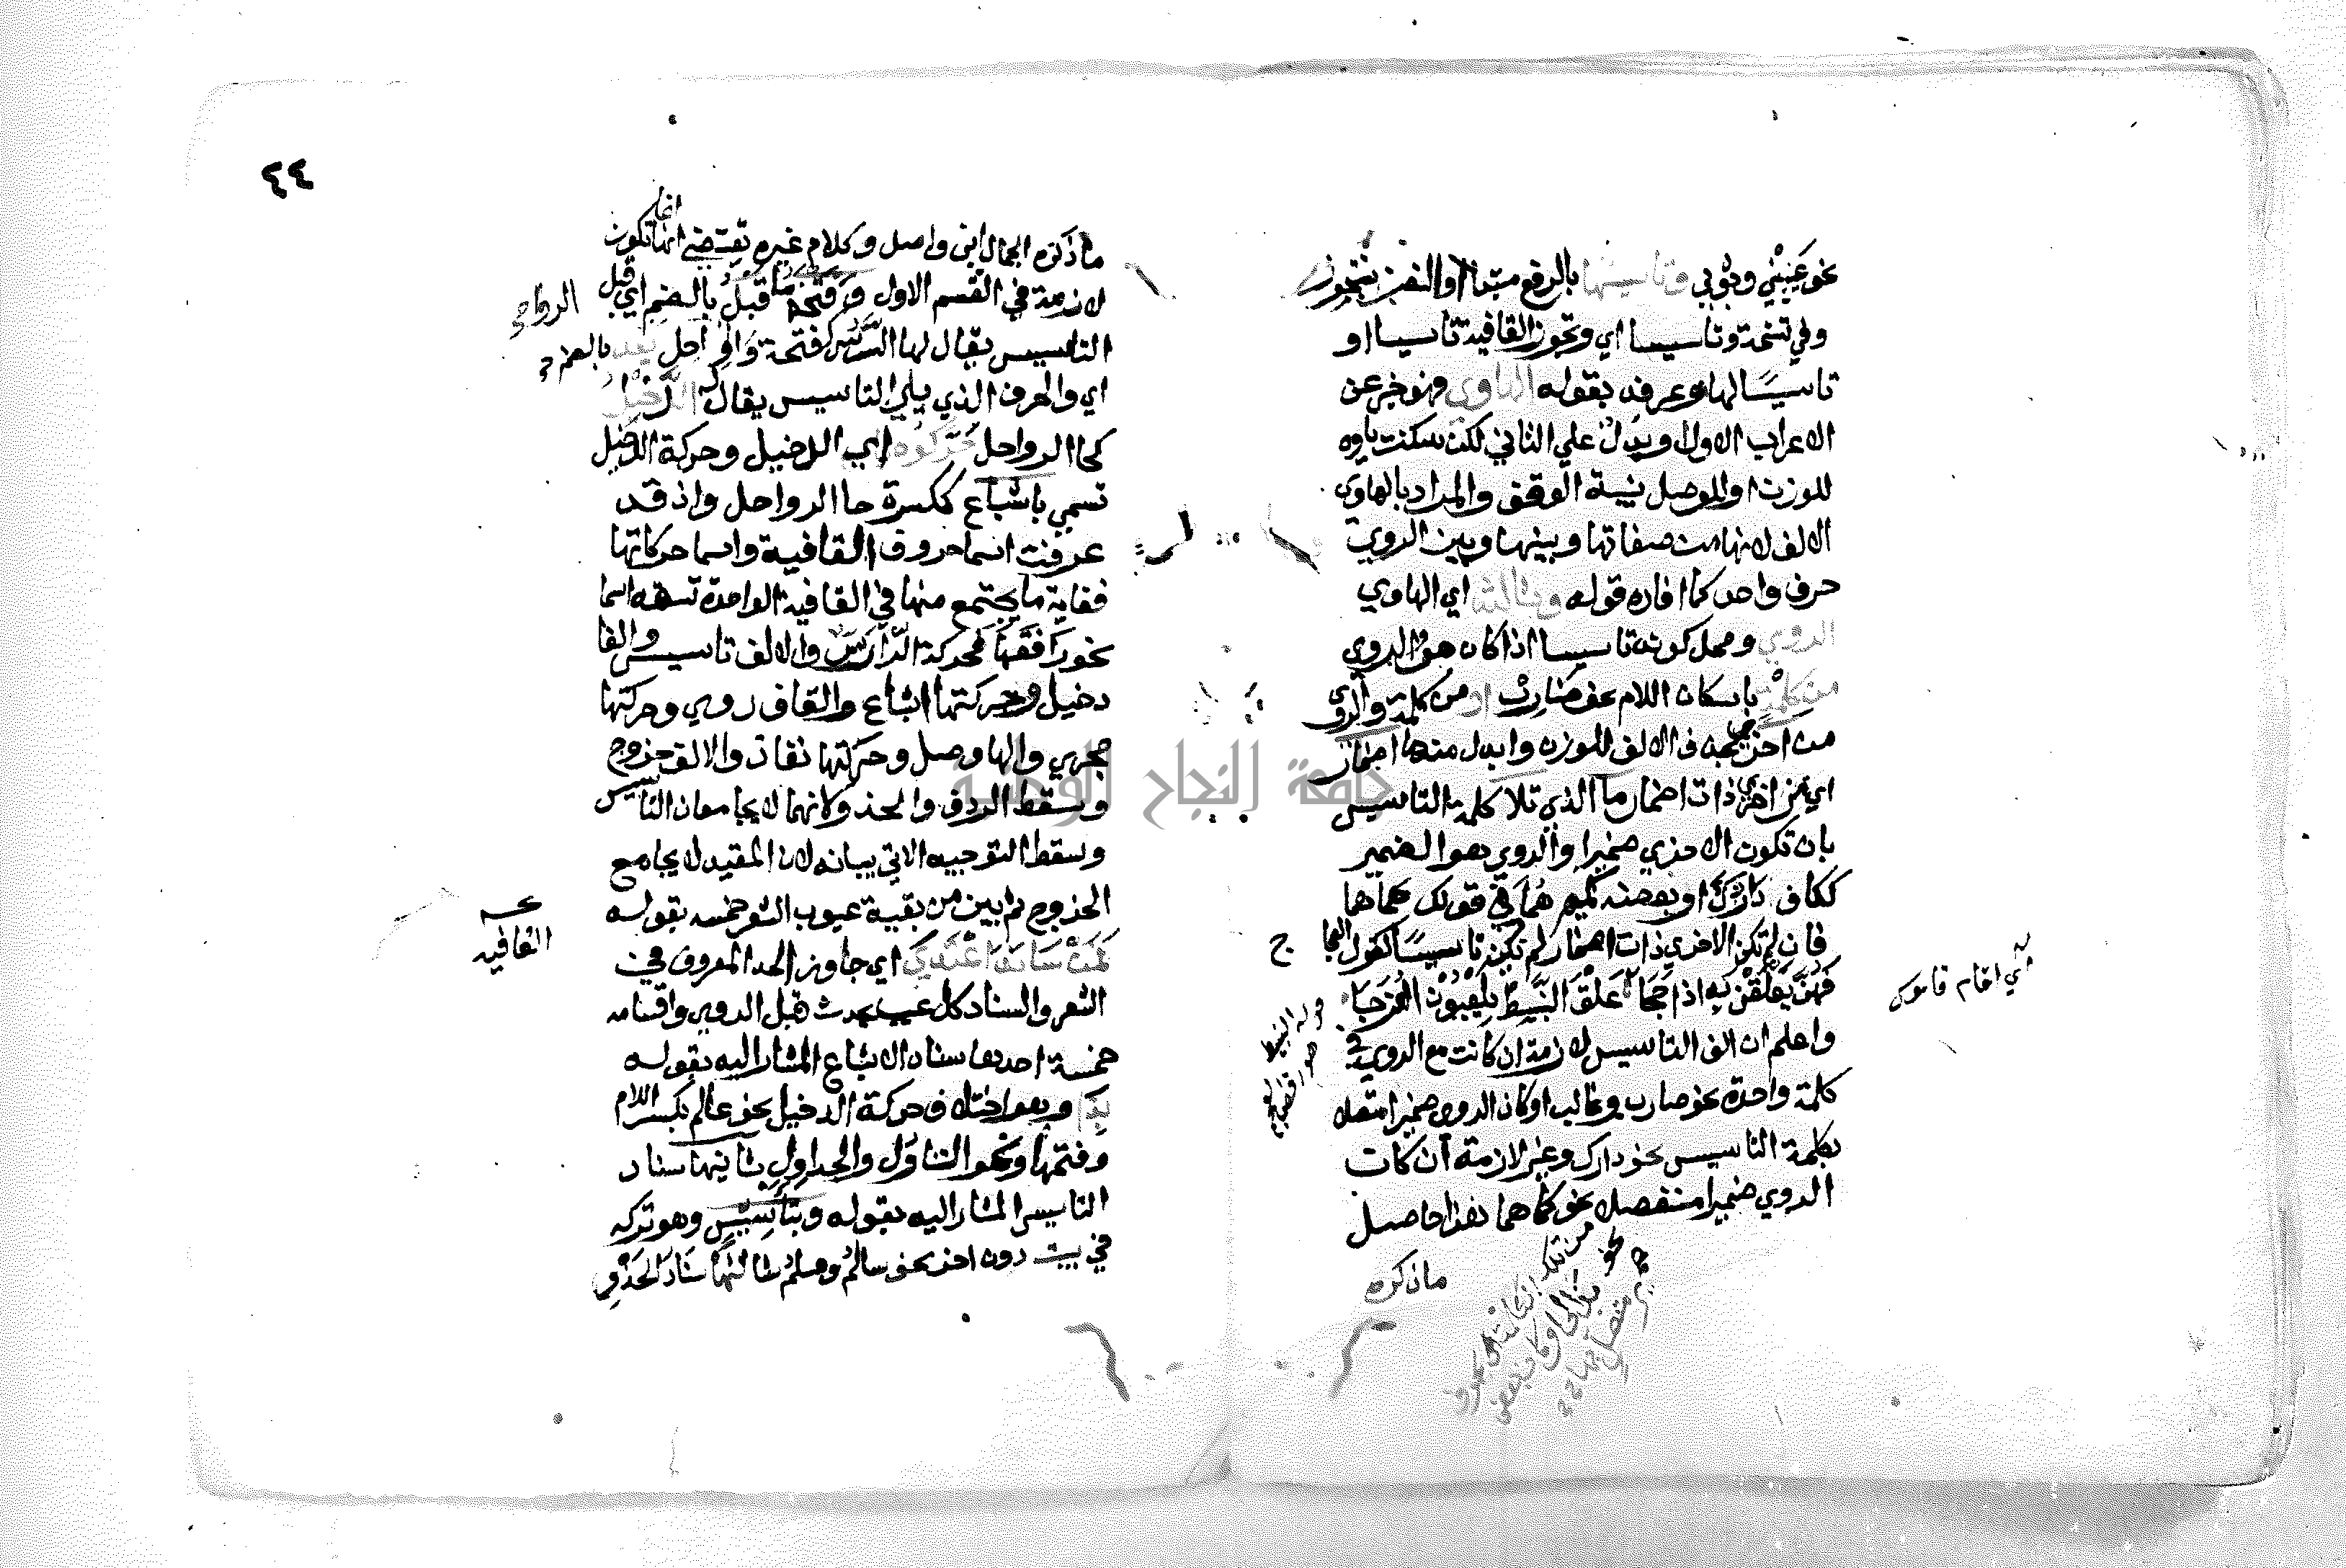 نحو عينيني وثوبي وتاسيسها بالرفع مبتدا او النصب بتحوز
وفي نسخة وتاسيسا اي وتحوز القافية تاسيسا او
تاسيسًا لها وعرفه بقوله الهاوي فهو خبر عن
الاعراب الاول وبدل علي الثاني لكن سكنت ياوه
للوزن او الوصل بنية الوقف والمراد بالهاوي
الالف لانها من صفاتها وبينها وبين الروي
حرف واحد كما افاده قوله وثالثه اي الهاوي
الروي ومحل كونه تاسيسا اذا كان هو والروي
من كلمة باسكان اللام نحو ضارب او من كلمة والروي
من اخري فحذف الالف للوزن وابدل منها اضمار
اي من اخري ذات اضمار ما الذي تلا كلمة التاسيس
بان تكون الاخري ضميرا والروي هو الضمير
ككاف دارك او بعضه كميم هما في قولك كما هما
فان لم تكن الاخري ذات اضمار لم تكن تاسيسًا كقول العجاج
فهن يعكفن به اذا حجا عكف النبيط يلعبون الفنزجا
واعلم ان الف التاسيس لازمة ان كانت مع الروي في
كلمة واحدة نحو ضارب وغالب او كان الروي ضميرا متصلا
بكلمة التاسيس نحو دارك وغير لازمة ان كان
الروي ضميرا منفصلا نحو كما هما هذا حاصل
ما ذكره
اي اقام قاموس
قوله النبيط
٤٤
ما ذكره الجمال ابن واصل وكلام غيره يقتضي انها تكون
لازمة في القسم الاول وفتحة ما قبل بالضم اي قبل
التاسيس يقال لها الرس كفتحة واو الرواحل بعد بالضم
اي والحرف الذي يلي التاسيس يقال له الدخيل
كحا الرواحل حركوه اي الدخيل وحركة الدخيل
تسمي باشباع ككسرة حا الرواحل واذ قد
عرفت اسما حروف القافية واسما حركاتها
فغاية ما يجتمع منها في القافية الواحدة تسعة اسما
نحو يوافقها فحركة الواو رس والالف تاسيس والفا
دخيل وحركتها اشباع والقاف روي وحركتها
مجري والها وصل وحركتها نفاذ والالف خروج
وسقط الردف والحذو لانهما لا يجامعان التاسيس
وسقط التوجيه الاتي بيانه لان المقيد لا يجامع
الخروج ثم بين من بقية عيوب الشعر خمسه بقوله
اي جاوز الحد المعروف في
الشعر والسناد كل عيب يحدث قبل الروي واقسامه
خمسة احدها سناد الاشباع المشار اليه بقوله
بذا وهو اختلاف حركة الدخيل نحو عالم بكسر اللام
وفتحها ونحو التناول والجداول ثانيها سناد
التاسيس المشار اليه بقوله وبتاسيس وهو تركه
في بيت دون اخر نحو سالم ومسلم ثالثها سناد الحذو
القافيه
جامعة النجاح الوطنية